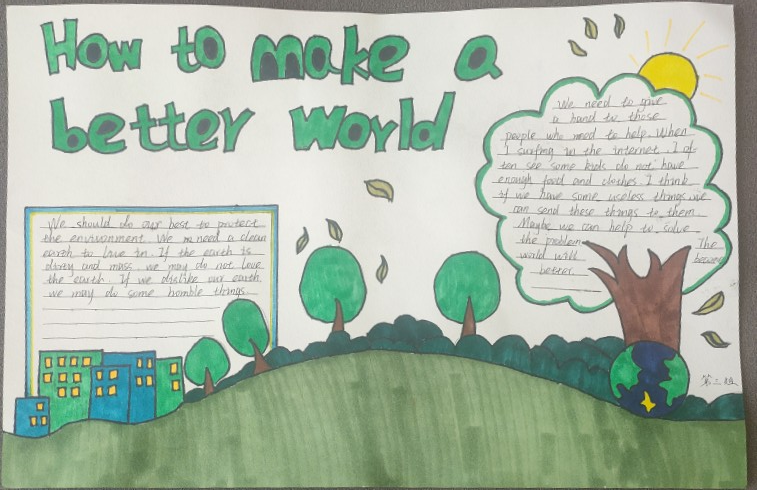 How to make a
better world
We should do our best to protect
the environment. We need a clean
earth to live in. If the earth is
dirty and mass we may do not love
the earth. If we dislike our earth
we may do some homble things.
We need to give
a hand to those
people who need to help. When
I surfing in the internet. I of
ten see some kids do not have
enough food and clothes. I think
if we have some useless things, we
can send these things to them
Maybe we can help to solve
the problem. The
world will become
better
第三组